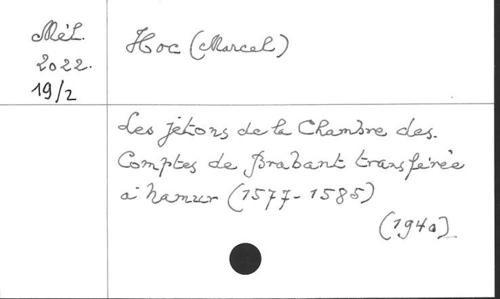 Mél.
2022.
19/2
Hoc (Marcel)
Les jetons de la Chambre des
Comptes de Brabant transférée
à Namur (1577-1585)
(1940)